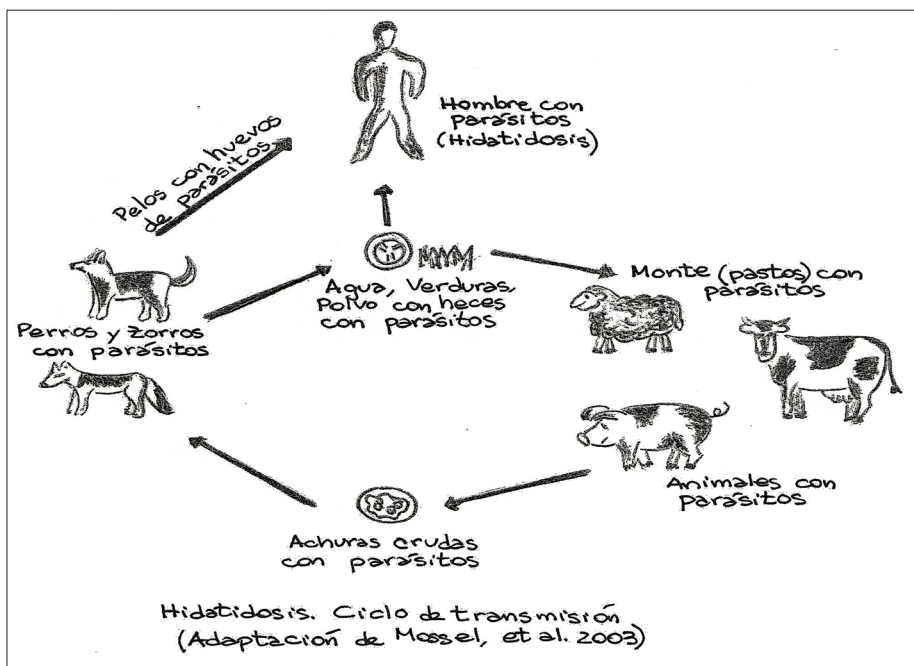 Hombre con
parásitos
(Hidatidosis)
Pelos con huevos
de parásitos
Agua, Verduras,
Polvo con heces
con parásitos
Monte (pastos) con
parásitos
Perros y zorros
con parásitos
Animales con
parásitos
Achuras crudas
con parásitos
Hidatidosis. Ciclo de transmisión
(Adaptación de Mossel, et al. 2003)